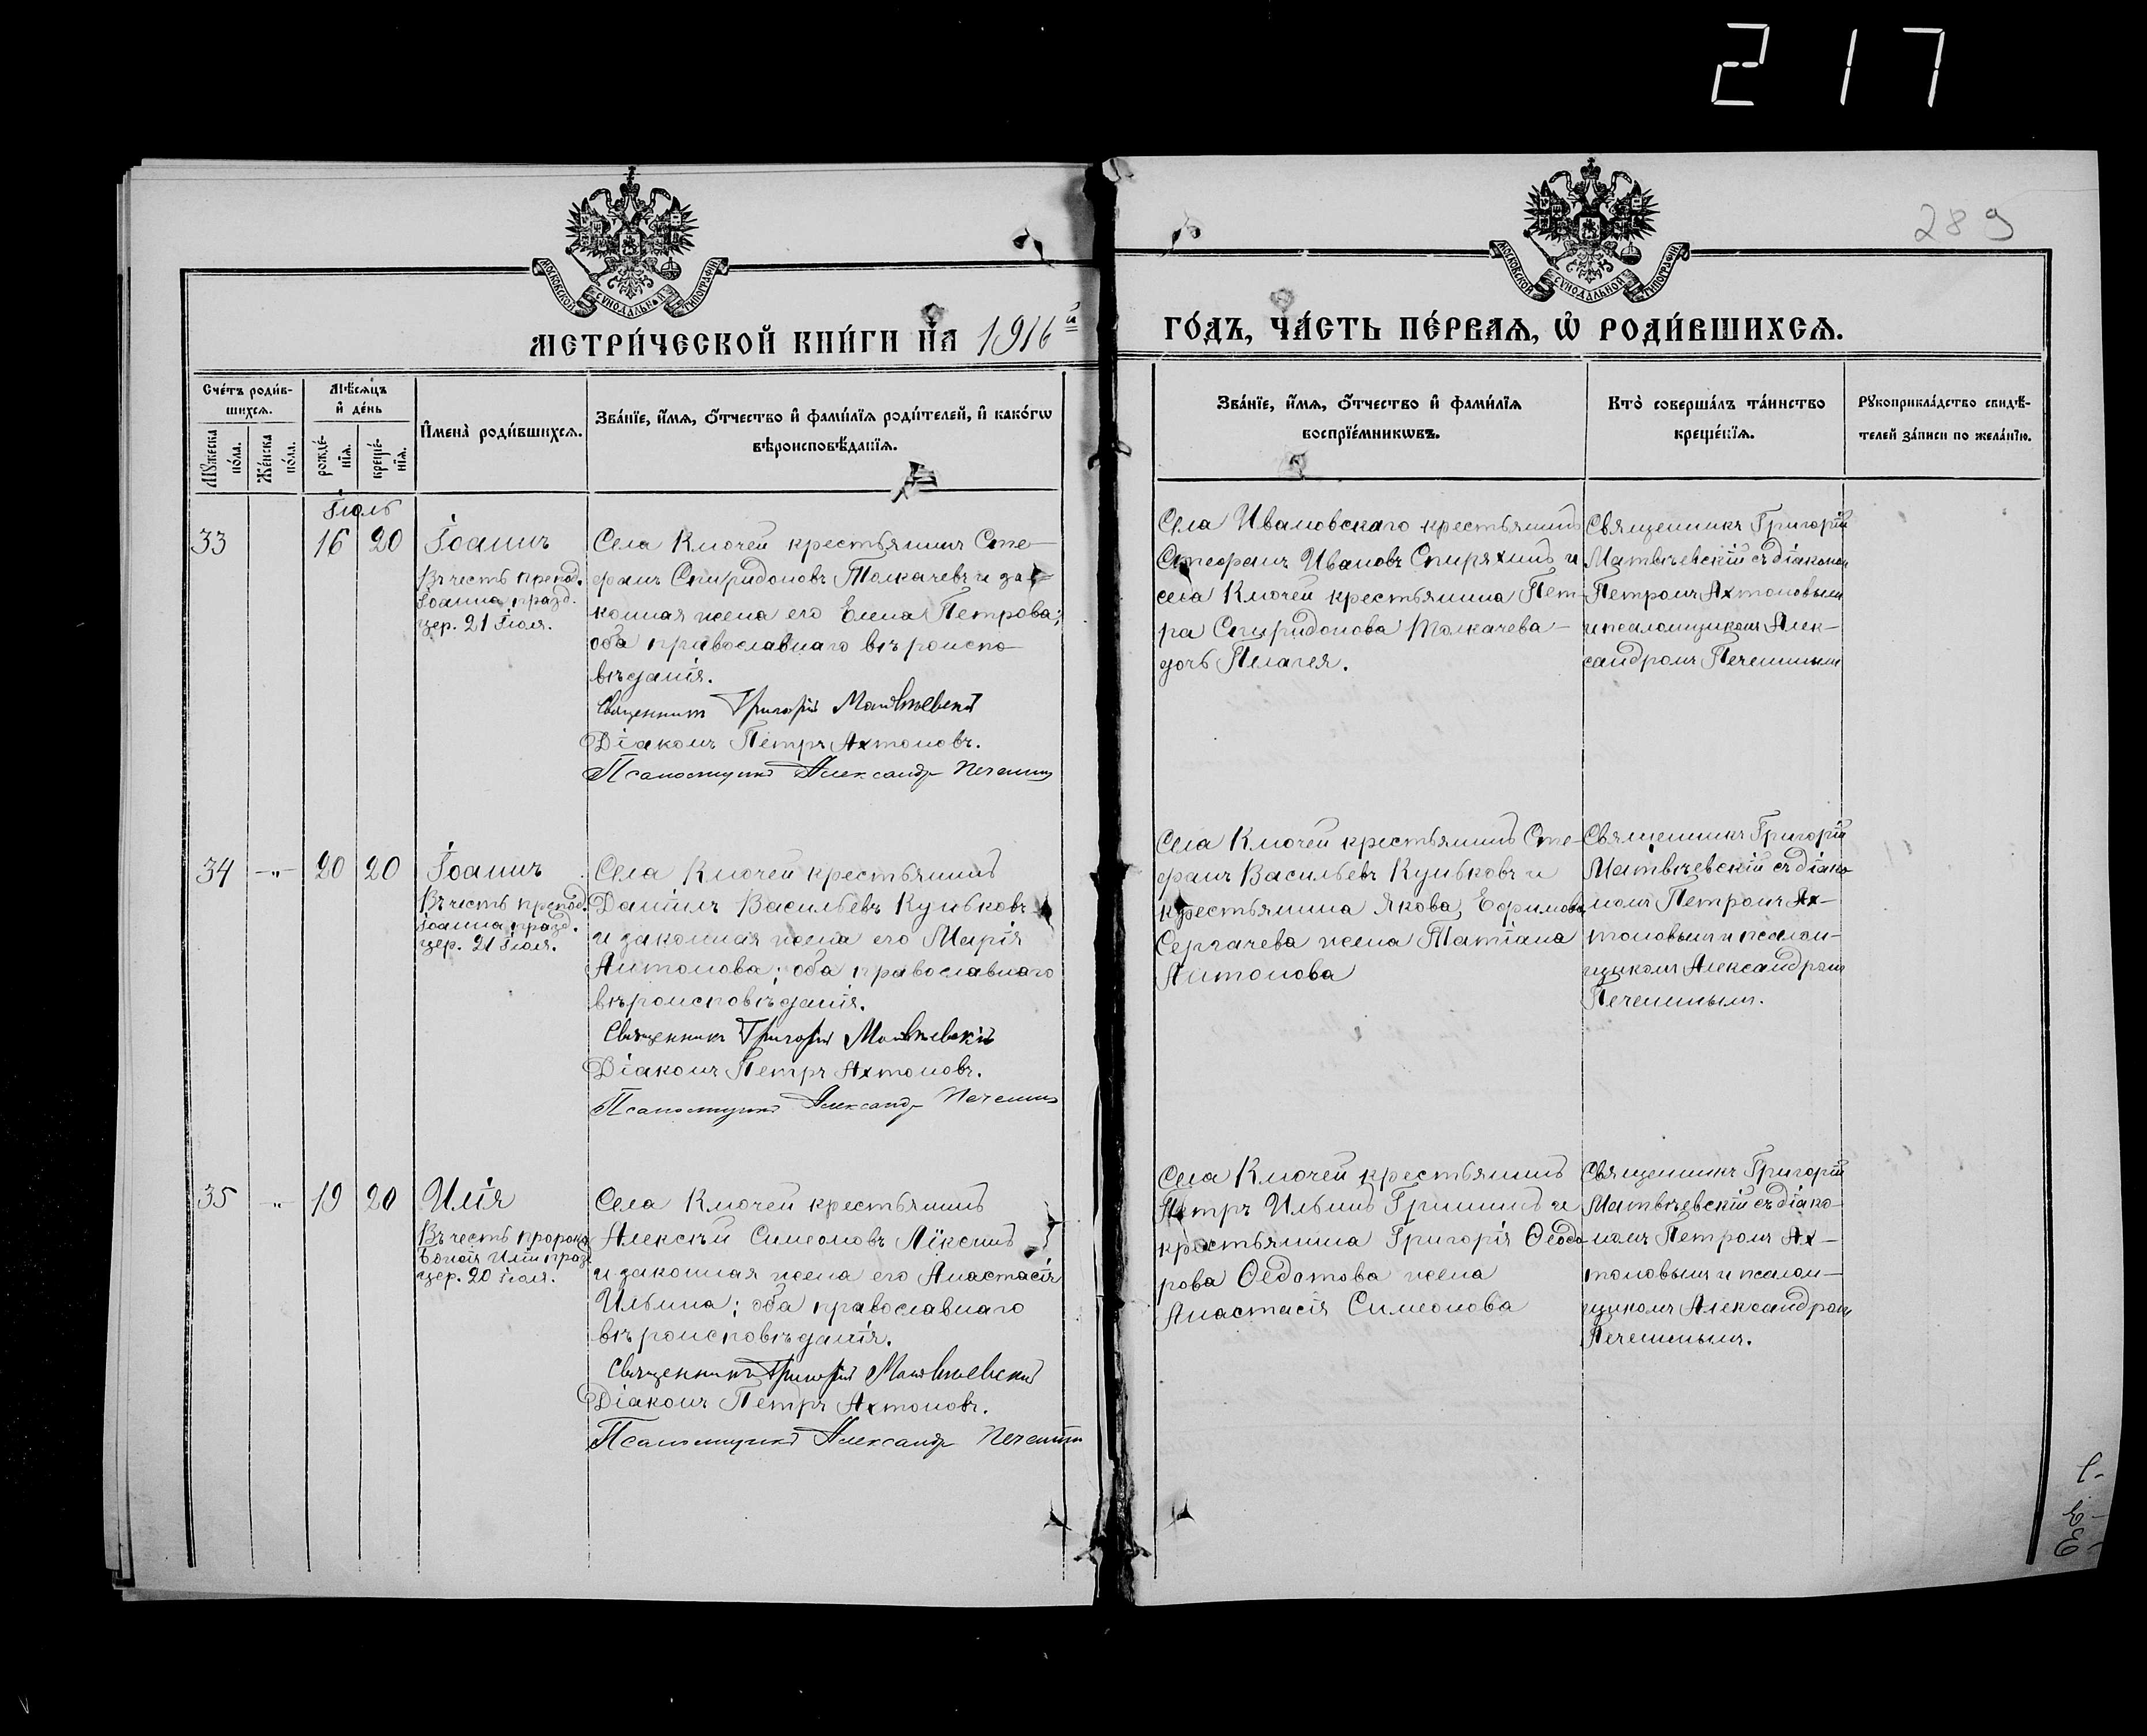 217
289
МОСКОВСКОЙ СУНОДАЛЬНОЙ ТИПОГРАФІИ
МОСКОВСКОЙ СУНОДАЛЬНОЙ ТИПОГРАФІИ
МЕТРИ́ЧЕСКОЙ КНИ́ГИ НА 1916й
ГО́ДЪ, ЧА́СТЬ ПЕ́РВАѦ, Ѡ҆ РОДИ́ВШИХСѦ.
Сче́тъ роди́в-
шихсѧ.
Мѣ́сѧцъ
и҆ де́нь
Мꙋ́жеска
по́ла.
Же́нска
по́ла.
рожде́-
нїѧ.
креще́-
нїѧ.
И҆мена̀ роди́вшихсѧ.
Зва́нїе, и҆́мѧ, ѻ҆́тчество и҆ фами́лїѧ роди́телей, и҆ како́гѡ
вѣроисповѣ́данїѧ.
Зва́нїе, и҆́мѧ, ѻ҆́тчество и҆ фами́лїѧ
воспрїе́мникѡвъ.
Кто̀ соверша́лъ та́инство
креще́нїѧ.
Рꙋкоприкла́дство свидѣ́-
телей за́писи по жела́нїю.
Іюль
33 16 20 Іоаннъ
Въ честь препод.
Іоанна празд.
цер. 21 Іюля.
Села Ключей крестьянинъ Сте-
фанъ Спиридоновъ Толкачевъ и за-
конная жена его Елена Петрова;
оба православнаго вѣроиспо-
вѣданія.
Священникъ Григорій Матвѣевскій
Діаконъ Петръ Ахтоновъ.
Псаломщикъ Александръ Печенинъ
Села Ивановскаго крестьянинъ
Стефанъ Ивановъ Спиряхинъ и
села Ключей крестьянина Пет-
ра Спиридонова Толкачева
дочь Пелагея.
Священникъ Григорій
Матвѣевскій съ діакономъ
Петромъ Ахтоновымъ
и псаломщикомъ Алек-
сандромъ Печенинымъ
34 -"- 20 20 Іоаннъ
Въ честь препод.
Іоанна празд.
цер. 21 Іюля.
Села Ключей крестьянинъ
Даніилъ Васильевъ Кулбковъ
и законная жена его Марія
Антонова; оба православнаго
вѣроисповѣданія.
Священникъ Григорій Матвѣевскій
Діаконъ Петръ Ахтоновъ.
Псаломщикъ Александръ Печенинъ
Села Ключей крестьянинъ Сте-
фанъ Васильевъ Кулбковъ и
крестьянина Якова Ефимова
Сергачева жена Татіана
Антонова
Священникъ Григорій
Матвѣевскій съ діако-
номъ Петромъ Ах-
тоновымъ и псалом-
щикомъ Александромъ
Печенинымъ.
35 -"- 19 20 Илія
Въ честь пророка
Божія Иліи празд.
цер. 20 Іюля.
Села Ключей крестьянинъ
Алексѣй Симеоновъ Аїксинъ
и законная жена его Анастасія
Ильина; оба православнаго
вѣроисповѣданія.
Священникъ Григорій Матвѣевскій
Діаконъ Петръ Ахтоновъ.
Псаломщикъ Александръ Печенинъ
Села Ключей крестьянинъ
Петръ Ильинъ Гришинъ и
крестьянина Григорія Ѳеодо-
рова Ѳедотова жена
Анастасія Симеонова
Священникъ Григорій
Матвѣевскій съ діако-
номъ Петромъ Ах-
тоновымъ и псалом-
щикомъ Александромъ
Печенинымъ.